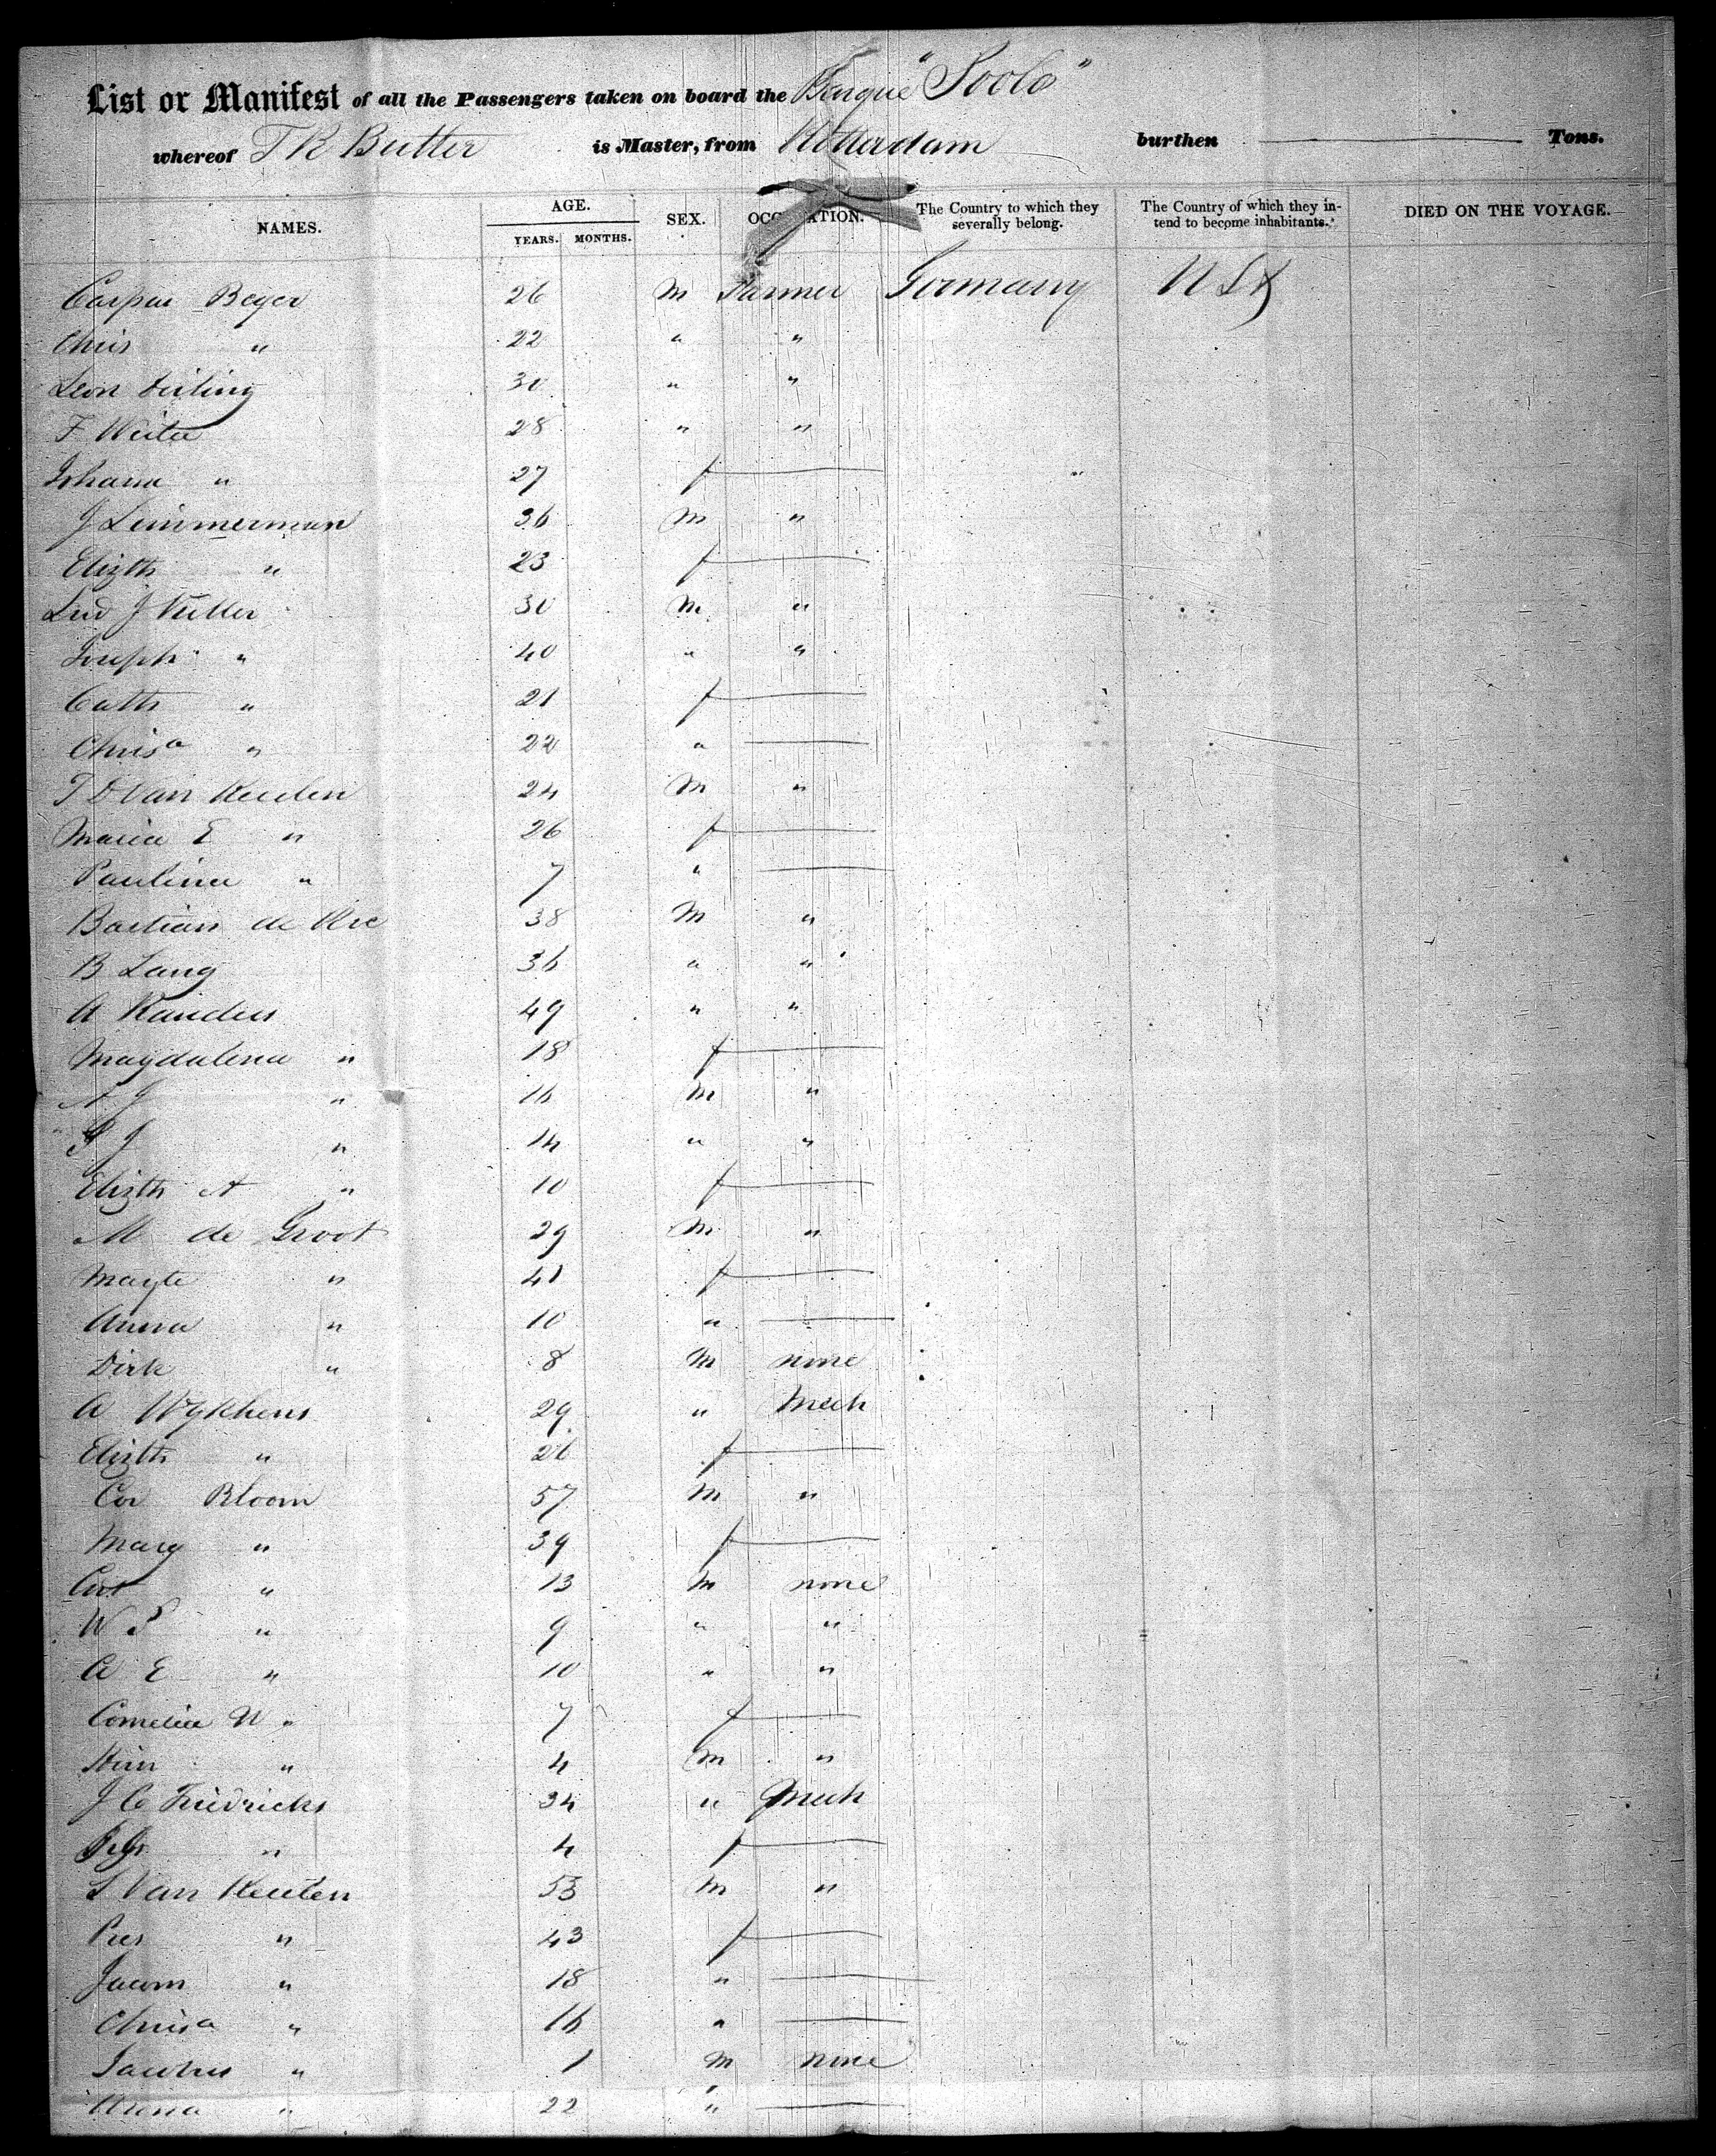 List or Manifest of all the Passengers taken on board the Barque "Soolo"
whereof T R Butter is Master, from Rotterdam burthen Tons.
NAMES. AGE. SEX. OCCUPATION. The Country to which they severally belong. The Country of which they intend to become inhabitants. DIED ON THE VOYAGE.
YEARS. MONTHS.
Caspar Beyer 26 M Farmer Germany USA
Chris " 22 " "
Leon 30 " "
F 28 " "
Johana " 27 f "
J Zimmerman 36 M "
Elizth " 23 f
J 30 M "
Joseph " 40 " "
Cath " 21 f
Chrisa " 22 "
Van 24 M "
Maria E " 26 f
Paulina " 7 "
Bastian de 38 M "
B Lang 36 " "
A 49 " "
Magdalena " 18 f
A J " 16 M "
P J " 14 " "
Elizth A " 10 f
M de Groot 29 M "
Magte " 41 f
Anna " 10 "
Dirk " 8 M none
A Wykhens 29 " Mech
Elizth " 26 f
Cor Bloom 57 M "
Mary " 39 f
" 13 M none
W " 9 " "
A E " 10 " "
Cornelia W " 7 f
" 4 M "
J C Friedricks 34 " Mech
" 4 f
S Van Keulen 53 M "
" 43 f
" 18 "
Chrisa " 16 "
" 1 M none
Anna " 22 "